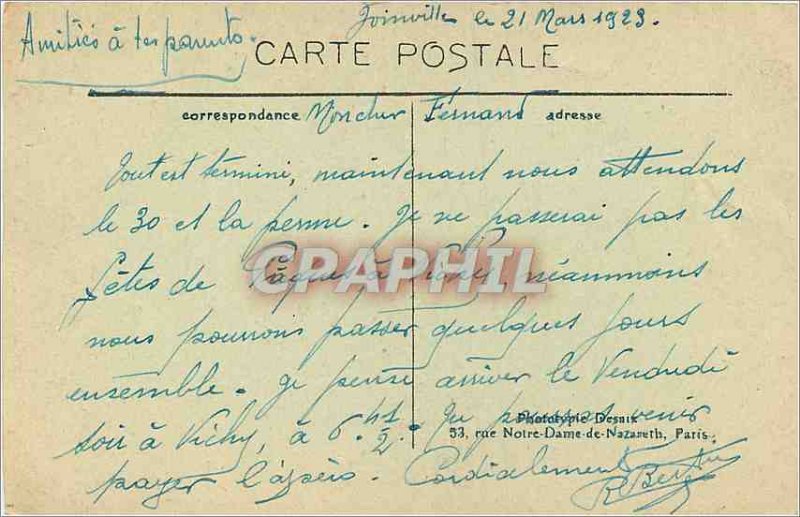 Joinville le 21 Mars 1923.
Amitiés à tes parents.
CARTE POSTALE
correspondance Mon cher Fernand adresse
Tout est terminé, maintenant nous attendons
le 30 et la perme. Je ne passerai pas les
fêtes de Pâques à néammoins
CPAPHIL
nous pouvons passer quelques jours
ensemble. Je pense arriver le Vendredi
soir à Vichy, à 6 h 1/2. Tu venir
Phototypie Desaix
53, rue Notre-Dame-de-Nazareth, Paris.
payer l'apéro. Cordialement